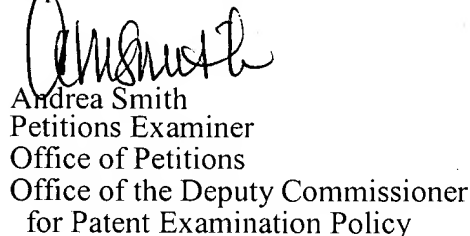 Andrea Smith
Petitions Examiner
Office of Petitions
Office of the Deputy Commissioner
for Patent Examination Policy